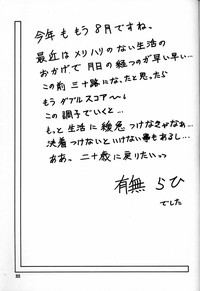 今年ももう8月ですね。
最近はメリハリのない生活の
おかげで月日の経つのが早い早い…
この前三十路になったと思ったら
もうダブルスコアへ…
この調子でいくと…
もっと生活に緩急つけなきゃなぁ…
決着つけないといけない事もあるし…
ああ、二十歳に戻りたいっ
有無らひ
でした